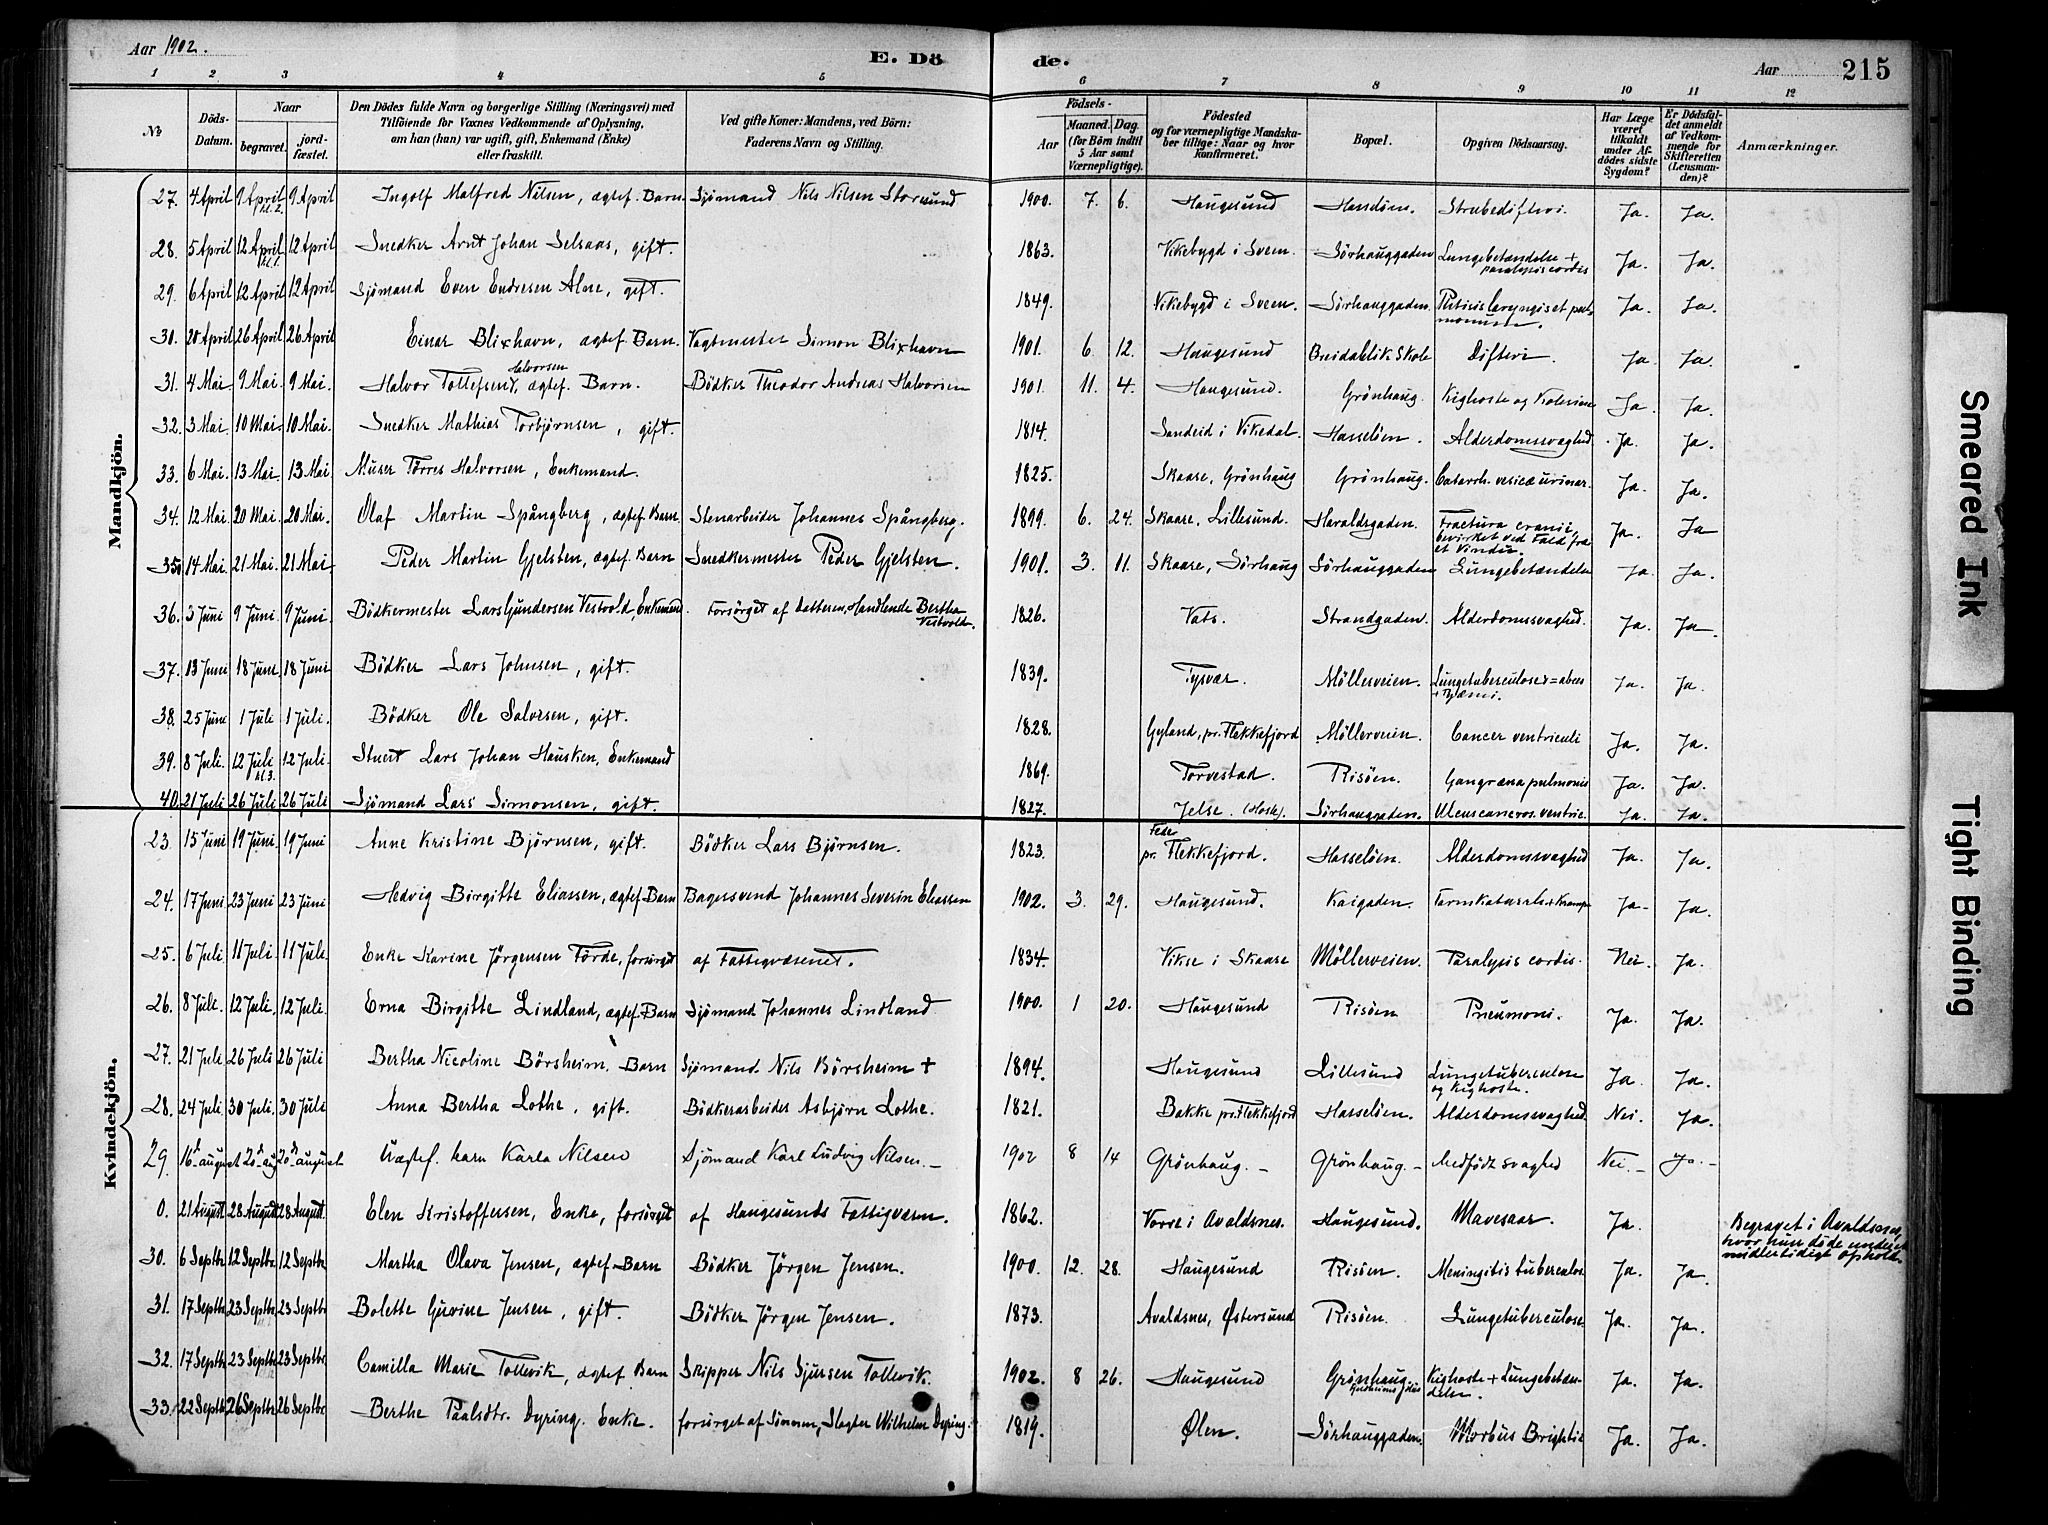 Aar 1902.
E. Dö
de.
Aar
215
1 2 3 4 5 6 7 8 9 10 11 12
No
Döds-Datum.
Naar
begravet.
jordfæstet.
Den Dödes fulde Navn og borgerlige Stilling (Næringsvei) med
Tilföiende for Voxnes Vedkommende af Oplysning,
om han (hun) var ugift, gift, Enkemand (Enke)
eller fraskilt.
Ved gifte Koner: Mandens, ved Börn:
Faderens Navn og Stilling.
Födsels-
Aar
Maaned. Dag.
(for Börn indtil 5 Aar samt Værnepligtige).
Födested
og for værnepligtige Mandskaber tillige: Naar og hvor konfirmeret.
Bopæl.
Opgiven Dödsaarsag.
Har Læge været tilkaldt under Afdödes sidste Sygdom?
Er Dödsfaldet anmeldt af Vedkommende for Skifteretten (Lensmanden)?
Anmærkninger.
Mandkjön.
27. 4 April 9 April kl. 2. 9 April Ingolf Malfred Nilsen, ægtef. Barn Sjömand Nils Nilsen Storesund 1900. 7. 6. Haugesund Strubedifteri. Ja. Ja.
28. 5 April 12 April kl. 1. 12 April Snedker Arnt Johan Selsaas, gift. 1863. Vikebygd i Sveen. Sörhauggaden Lungebetændelse + paralysis cordis Ja. Ja.
29. 6 April 12 April 12 April Sjömand Even Endresen Alne, gift. 1849. Vikebygd i Sveen. Sörhauggaden. Ja. Ja.
30. 20 April 26 April 26 April Einar Blixhavn, ægtef. Barn. Vagtmester Simon Blixhavn 1901. 6. 12. Haugesund Breidablik Skole Difteri. Ja Ja.
31. 4 Mai 9 Mai. 9 Mai. Halvor Tollefsen Halvorsen, ægtef. Barn. Bödker Theodor Andreas Halvorsen 1901. 11. 4. Haugesund. Grönhaug. Kighoste og Kolerine Ja. Ja.
32. 3 Mai. 10 Mai. 10 Mai. Snedker Mathias Torbjørnsen, gift. 1814. Sandeid i Vikedal. Hasselöen. Alderdomssvaghed. Ja. Ja.
33. 6 Mai. 13 Mai. 13 Mai Murer Törres Halvorsen, Enkemand. 1825. Skaare, Grönhaug Grönhaug. Catarrh. vesicæ urinar. Ja. Ja.
34. 12 Mai 20 Mai. 20 Mai. Olaf Martin Spångberg, ægtef. Barn Stenarbeider Johannes Spångberg. 1899. 6. 24. Skaare, Lillesund. Haraldsgaden. Fractura cranii, bevirket ved Fald fra et Vindu. Ja. Ja
35. 14 Mai. 21 Mai. 21 Mai Peder Martin Gjelsten, ægtef. Barn Snedkermester Peder Gjelsten. 1901. 3. 11. Skaare, Sörhaug Sörhauggaden Lungebetændelse Ja. Ja.
36. 3 Juni 9 Juni 9 Juni Bödkermester Lars Gundersen Vestvold, Enkemand. Forsörget af Datteren, Handlende Bertha Vestvold. 1826. Vats. Strandgaden. Alderdomssvaghed. Ja. Ja.
37. 13 Juni 18 Juni 18 Juni Bödker Lars Johnsen, gift. 1839. Tysvær. Möllerveien. Ja. Ja.
38. 25 Juni 1 Juli 1 Juli. Bödker Ole Salvesen, gift. 1828. Gyland, pr. Flekkefjord Möllerveien. Cancer ventriculi Ja. Ja.
39. 8 Juli. 12 Juli kl. 3. 12 Juli. Stuert Lars Johan Hausken, Enkemand 1869. Torvestad. Risöen. Gangræna pulmonis Ja. Ja.
40. 21 Juli 26 Juli 26 Juli Sjömand Lars Simonsen, gift. 1827. Jelse. Sörhauggaden. Ulcus canceros. ventric. Ja. Ja.
Kvindekjön.
23. 15 Juni 19 Juni 19 Juni Anne Kristine Bjørnsen, gift. Bödker Lars Bjørnsen. 1823. Fede pr. Flekkefjord. Hasselöen. Alderdomssvaghed Ja. Ja.
24. 17 Juni 23 Juni 23 Juni Hedvig Birgitte Eliassen, ægtef. Barn Bagersvend Johannes Severin Eliassen 1902. 3. 29. Haugesund. Kaigaden. Tarmkatarrh + Krampe Ja. Ja.
25. 6 Juli. 11 Juli. 11 Juli. Enke Karine Jörgensen Förde, forsörget af Fattigvæsenet. 1834. Vikse i Skaare Möllerveien. Paralysis cordis. Nei. Ja.
26. 8 Juli. 12 Juli. 12 Juli. Erna Birgitte Lindland, ægtef. Barn Sjömand Johannes Lindland 1900. 1 20. Haugesund Risöen Pneumoni. Ja. Ja.
27. 21 Juli 26 Juli 26 Juli Bertha Nicoline Börsheim. Barn Sjömand Nils Börsheim + 1894. Haugesund Lillesund Lungetuberculose og Kighoste. Ja. Ja.
28. 24 Juli. 30 Juli. 30 Juli Anna Bertha Lothe, gift. Bödkerarbeider Asbjørn Lothe. 1821. Bakke pr. Flekkefjord Hasselöen. Alderdomssvaghed. Nei. Ja.
29 16d august 20d aug 20d august Uægtef. barn Karla Nilsen Sjömand Karl Ludvig Nilsen.– 1902 8 14 Grönhaug.– Grönhaug– Medfödt svaghed Nei.– Ja.–
0. 21 August 28 August 28 August. Elen Kristoffersen, Enke, forsörget af Haugesunds Fattigvæsen. 1862. Vorre i Avaldsnes. Haugesund. Mavesaar. Ja. Begravet i Avaldsnes, hvor hun døde under et midlertidigt ophold.
30. 6 Septbr 12 Septbr. 12 Septbr. Martha Olava Jensen, ægtef. Barn Bödker Jörgen Jensen. 1900. 12. 28. Haugesund Risöen. Meningitis tuberculos. Ja. Ja.
31. 17 Septbr 23 Septbr 23 Septbr. Bolette Gurine Jensen, gift. Bödker Jörgen Jensen. 1873. Avaldsnes, Østersund Risöen. Lungetuberculose Ja. Ja.
32. 17 Septbr 23 Septbr 23 Septbr. Camilla Marie Tollevik, ægtef. Barn Skipper Nils Sjursen Tollevik. 1902. 8 26. Haugesund Grönhaug Kighoste + Lungebetændelse. Ja. Ja.
33. 22 Septbr 26 Septbr 26 Septbr. Berthe Paalsdtr. Dyring. Enke. forsörget af Sönnen, Slagter Wilhelm Dyring. 1819. Ølen. Sörhauggaden. Morbus Brightii Ja. Ja.
Smeared Ink
Tight Binding